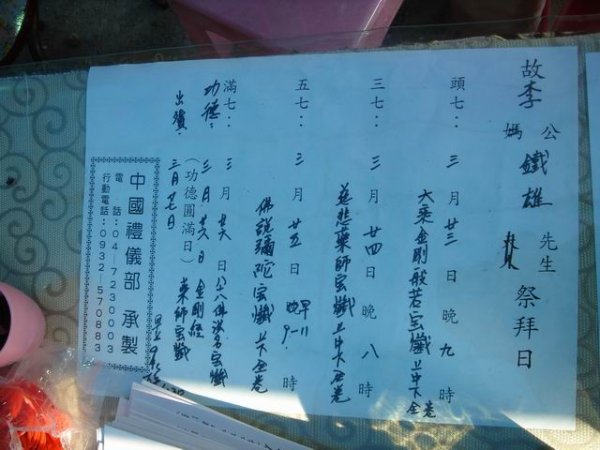 故李 公媽 鐵雄 先生 祭拜日
頭七：三月廿三日晚九時
大乘金剛般若宝懺上中下全卷
三七：三月廿四日晚八時
慈悲藥師宝懺上中下全卷
五七：三月廿五日 早11 晚9 時
佛說彌陀宝懺上下全卷
滿七：三月廿六日 八十八佛洪名宝懺
功德：三月廿六日 金剛經
（功德圓滿日） 藥師宝懺
出殯：三月廿七日
中國禮儀部 承製
電話：04-7230003
行動電話：0932-570883